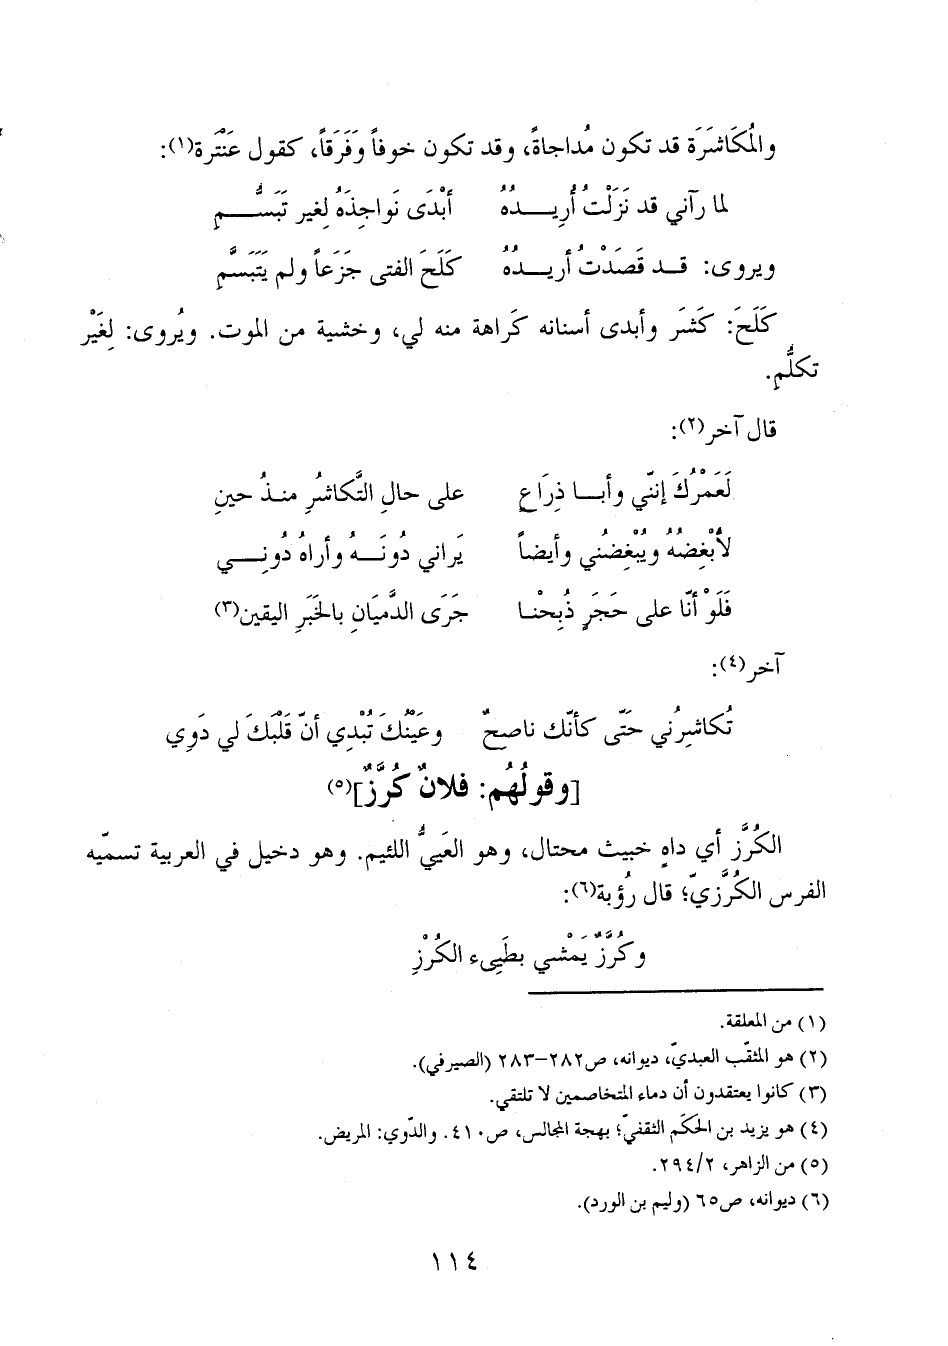 والمُكَاشَرَة قد تكون مُداجاةً، وقد تكون خوفاً وَفَرَقاً، كقول عَنْتَرة(١):
لما رآني قد نَزَلْتُ أُرِيـــدُهُ أبْدَى نَواجِذَهُ لِغير تَبَسُّـــمِ
ويروى: قـد قَصَدْتُ أُريـــدُهُ كَلَحَ الفتى جَزَعاً ولم يَتَبَسَّمِ
كَلَحَ: كَشَرَ وأبدى أسنانه كَراهة منه لي، وخشية من الموت. ويُروى: لِغَيْر
تكلُّمِ.
قال آخر(٢):
لَعَمْرُكَ إنّني وأبـا ذِرَاعٍ على حالِ التَّكاشُرِ منـذُ حينِ
لأُبْغِضُهُ ويُبْغِضُني وأيضاً يَراني دُونَـهُ وأراهُ دُونِـــي
فَلَوْ أنّا على حَجَرٍ ذُبِحْنـا جَرَى الدَّمَيَانِ بالخَبَرِ اليقين(٣)
آخر(٤):
تُكاشِرُني حَتّى كأنّك ناصِحٌ وعَيْنُكَ تُبْدِي أنّ قَلْبَكَ لي دَوِي
[وقولُهُم: فلانٌ كُرَّزٌ](٥)
الكُرَّز أي داهٍ خبيث محتال، وهو العَييُّ اللئيم. وهو دخيل في العربية تسمّيه
الفرس الكُرَّزيّ؛ قال رُؤبة(٦):
وكُرَّزٌ يَمْشي بطَيِىء الكُرْزِ
(١) من المعلقة.
(٢) هو المثقّب العبديّ، ديوانه، ص٢٨٢-٢٨٣ (الصيرفي).
(٣) كانوا يعتقدون أن دماء المتخاصمين لا تلتقي.
(٤) هو يزيد بن الحكَم الثقفيّ؛ بهجة المجالس، ص٤١٠. والدّوي: المريض.
(٥) من الزاهر، ٢٩٤/٢.
(٦) ديوانه، ص٦٥ (وليم بن الورد).
١١٤